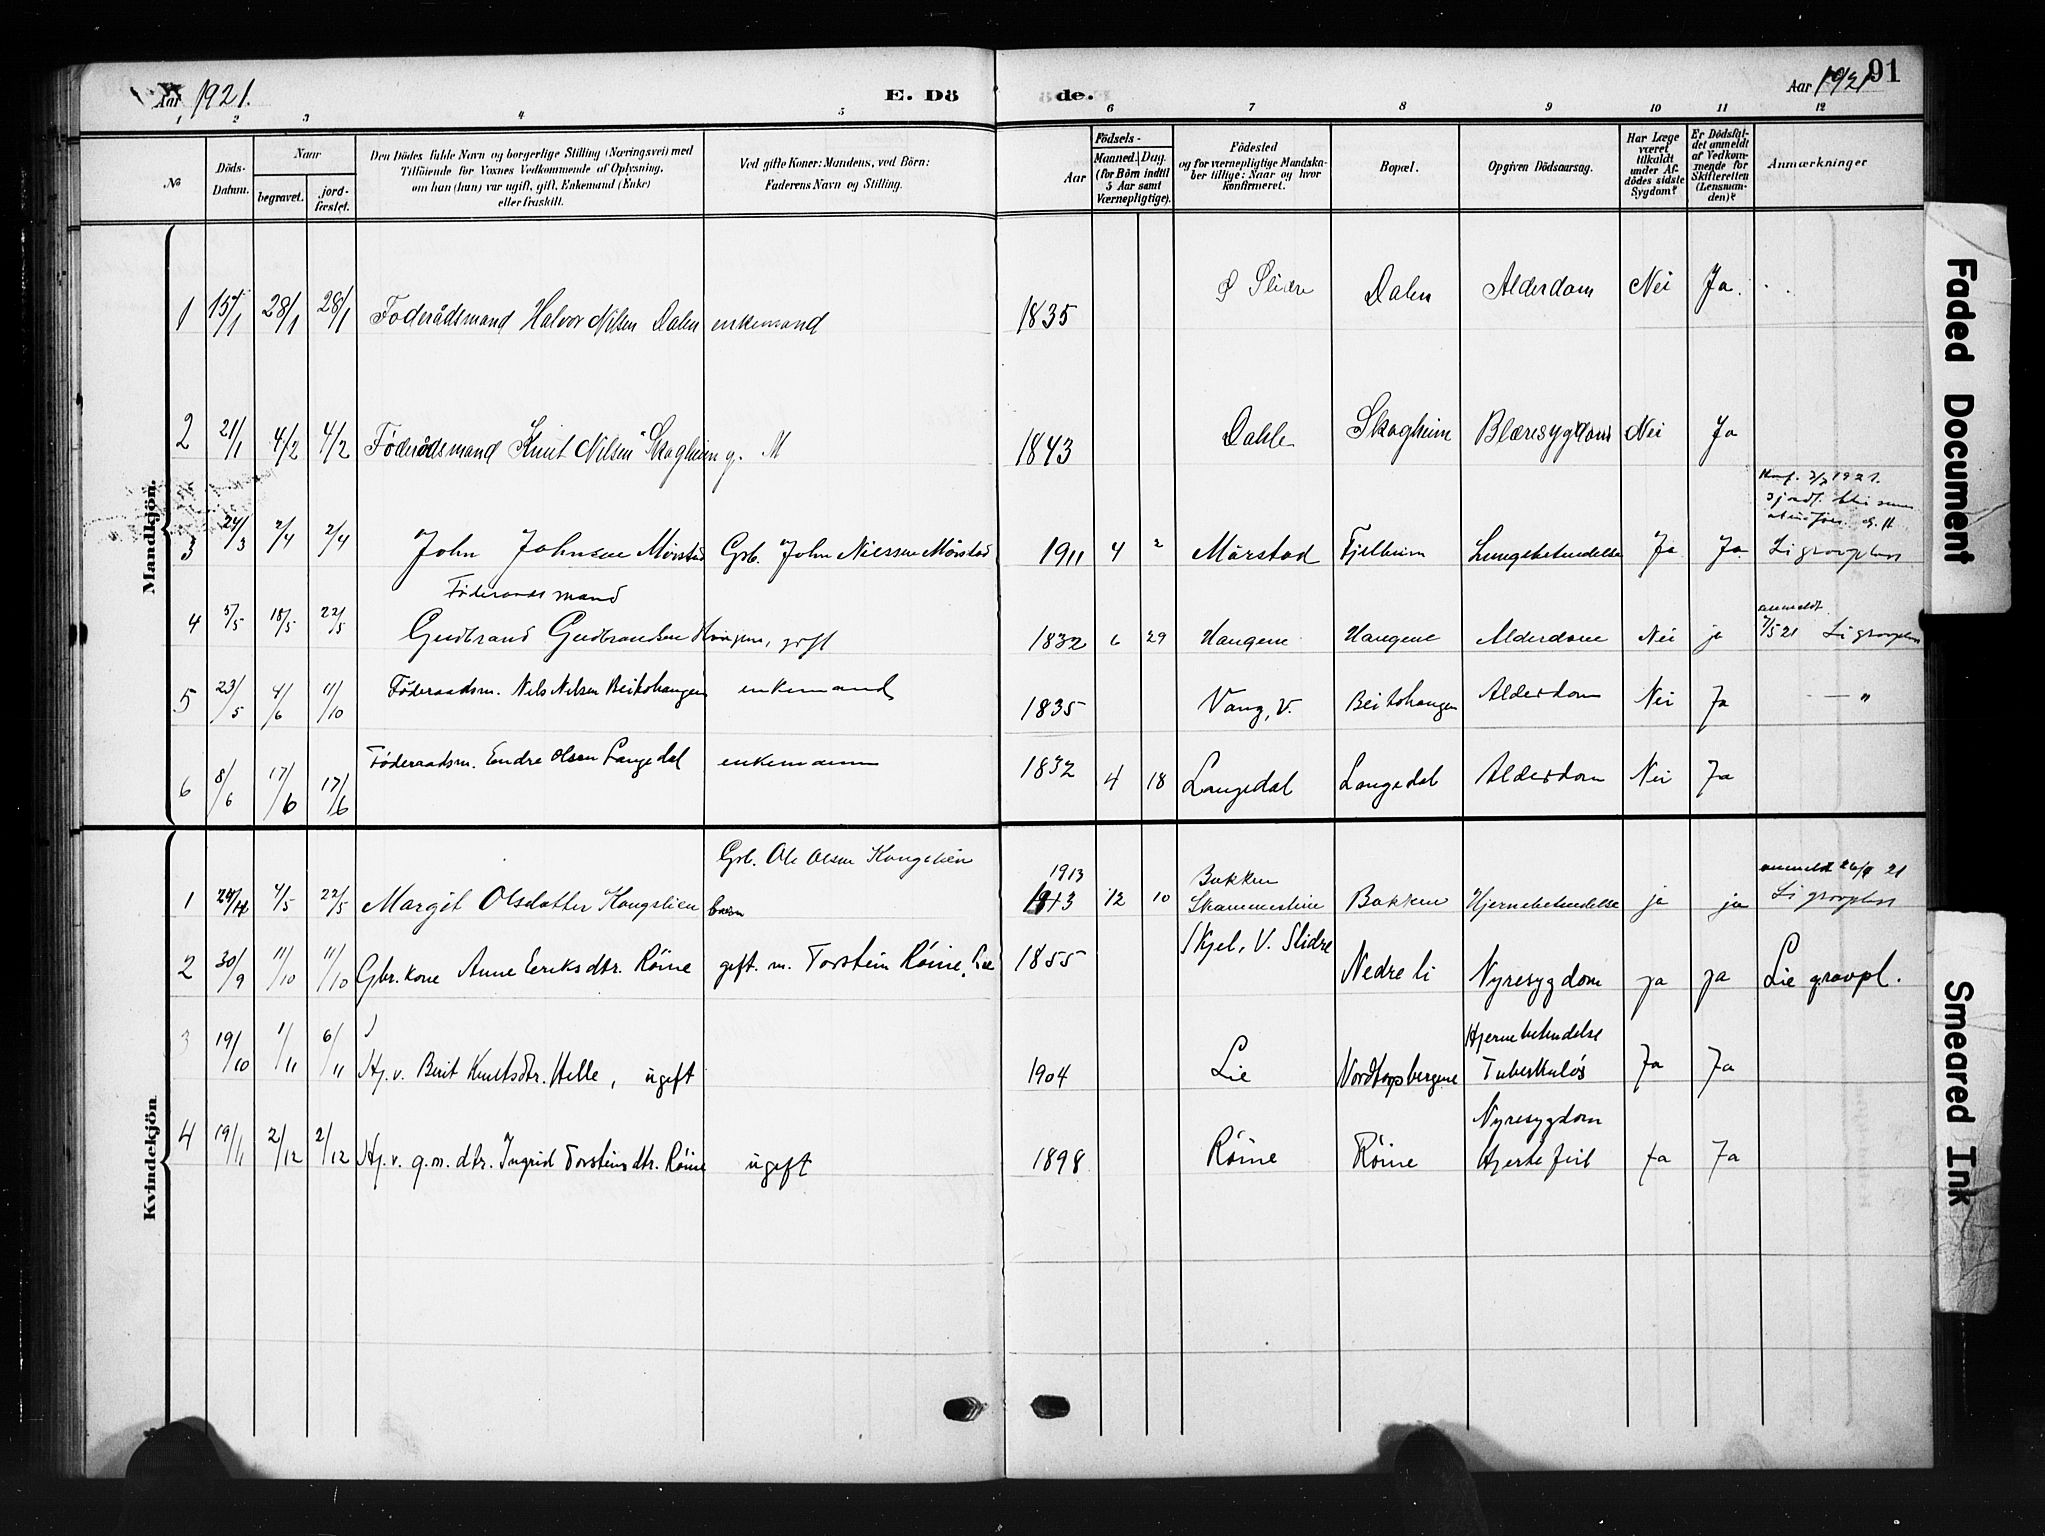 Aar 1921.
E. Dö
de.
Aar 1921
91
1 2 3 4 5 6 7 8 9 10 11 12
No
Döds-Datum.
Naar
begravet.
jord-fæstet.
Den Dödes fulde Navn og borgerlige Stilling (Næringsvei) med
Tilföiende for Voxnes Vedkommende af Oplysning,
om hun (han) var ugift, gift, Enkemand (Enke)
eller fraskilt.
Ved gifte Koner: Mandens, ved Börn:
Faderens Navn og Stilling.
Födsels-
Aar
Maaned. Dag.
(for Börn indtil
5 Aar samt
Værnepligtige).
Födested
og for værnepligtige Mandska-
ber tillige: Naar og hvor
konfirmeret.
Bopæl.
Opgiven Dödsaarsag.
Har Læge
været
tilkaldt
under Af-
dödes sidste
Sygdom?
Er Dödsfal-
det anmeldt
af Vedkom-
mende for
Skifteretten
(Lensman-
den)?
Anmærkninger
Mandkjön.
1 15/1 28/1 28/1 Føderådsmand Halvor Nilsen Dalen enkemand 1835 Ø Slidre Dalen Alderdom Nei Ja.
2 21/1 4/2 4/2 Føderådsmand Knut Nilsen Skagheim g. M 1843 Dahle Skagheim Blæresygdom Nei Ja
3 24/3 2/4 2/4 John Johnsen Mørstad Grb. John Nielssen Mørstad 1911 4 2 Mørstad Fjelheim Lungebetendelse Ja Ja Li gravplass
Føderaadsmand
4 5/5 18/5 22/5 Gudbrand Gudbrandsen Haugene, gift 1832 6 29 Haugene Haugene Alderdom Nei ja anmeldt 7/5 21 Li gravplass
5 23/5 4/6 11/10 Føderaadsm. Nils Nilsen Beitohaugen enkemand 1835 Vang, V. Beitohaugen Alderdom Nei Ja — "
6 8/6 17/6 17/6 Føderaadsm. Endre Olsen Langedal enkemann 1832 4 18 Langedal Langedal Alderdom Nei Ja
Kvindekjön
Grb. Ole Olsen Kongslien
1913
1 4/5 22/5 Margit Olsdatter Kongslien barn 1913 12 10 Bakken Skammestein Bakken Hjernebetendelse ja ja anmeldt 21 Li gravplass
2 30/9 11/10 11/10 Gbr. kone Anne Eriksdtr. Røine gift. m. Torstein Røine, Lie 1855 Skjel, V. Slidre Nedre li Nyresygdom ja ja Lie gravpl.
3 19/10 1/11 6/11 Hj. v. Berit Knutsdtr. Helle, ugift 1904 Lie Nordtorpsbergene Hjernebetendelse Tuberkuløs Ja Ja
4 19/11 2/12 2/12 Hj. v. g. m. dtr. Ingrid Torsteinsdtr. Røine ugift 1898 Røine Røine Nyresygdom Hjertefeil Ja Ja
Faded Document
Smeared Ink